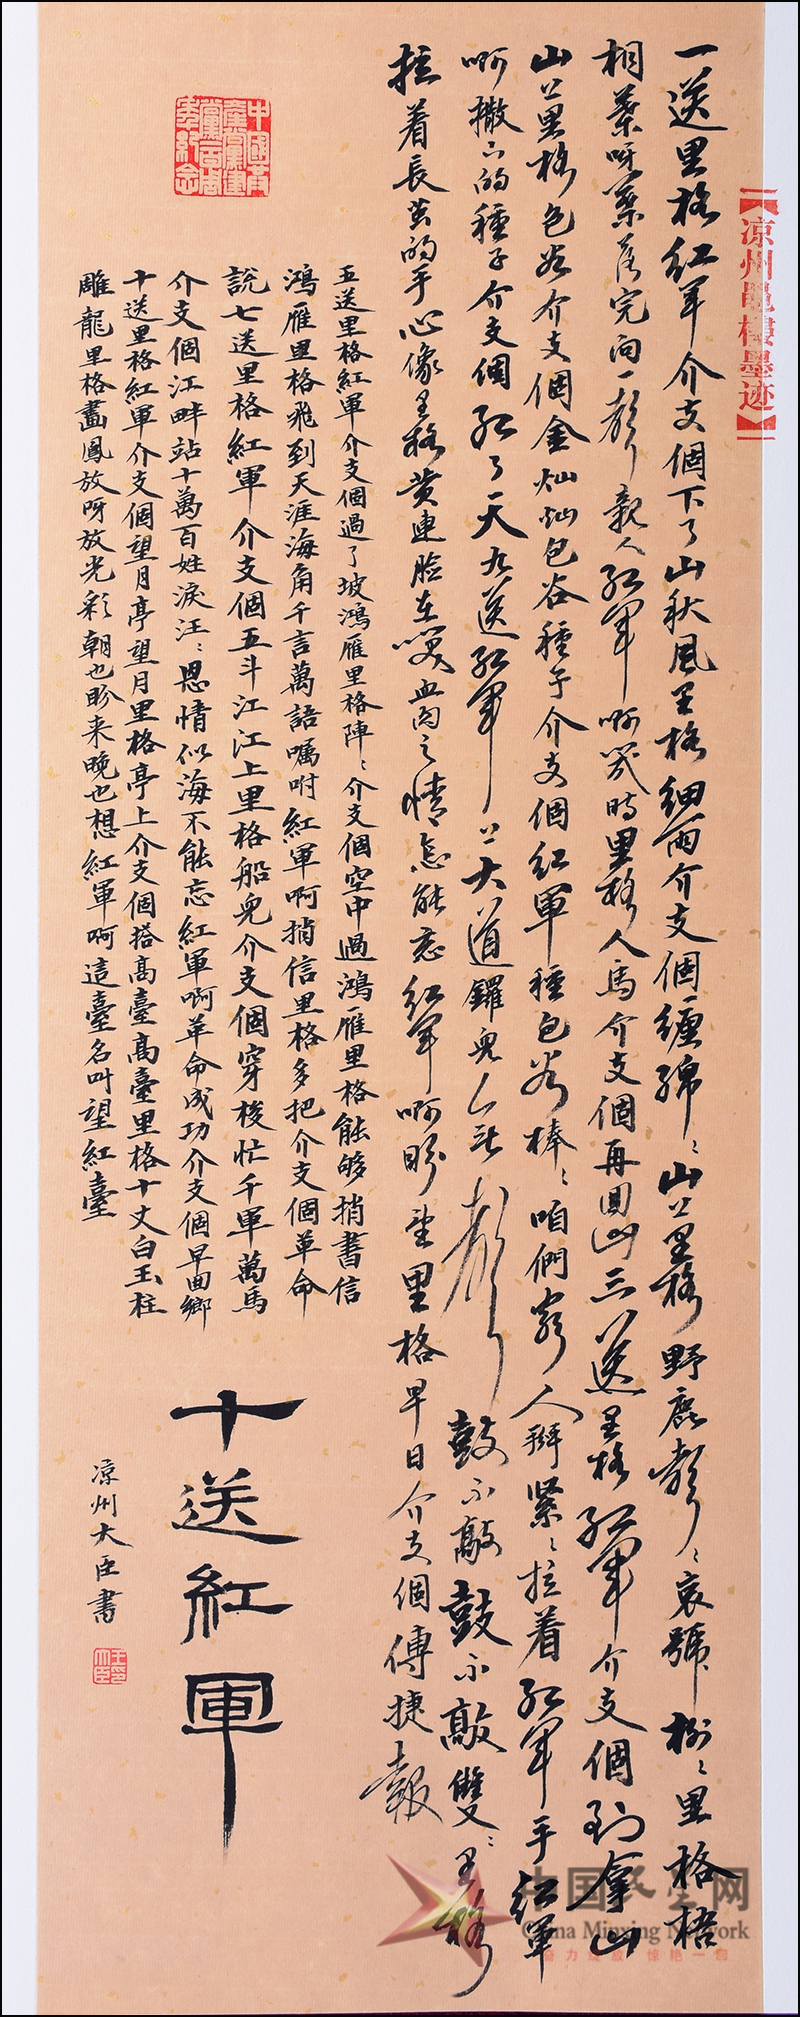 一送里格紅軍介支個下了山秋風里格細雨介支個纏綿々山上里格野鹿聲々哀號樹々里格梧
相葉呀葉落完問一聲親人紅軍啊幾時里格人馬介支個再回山三送里格紅軍介支個到拿山
山上里格包谷介支個金灿灿包谷種子介支個紅軍種包谷棒々咱們窮人掰緊々拉着紅軍手紅軍
啊撒下的種子介支個紅了天九送紅軍上大道鑼兒無聲鼓不敲鼓不敲雙々里格
拉着長茧的手心像里格黄連脸在笑血肉之情怎能忘紅軍啊盼望里格早日介支個傳捷報
五送里格紅軍介支個過了坡鴻雁里格陣々介支個空中過鴻雁里格能够捎書信
鴻雁里格飛到天涯海角千言萬語囑咐紅軍啊捎信里格多把介支個革命
説七送里格紅軍介支個五斗江江上里格船兒介支個穿梭忙千軍萬馬
介支個江畔站十萬百姓淚汪々恩情似海不能忘紅軍啊革命成功介支個早回鄉
十送里格紅軍介支個望月亭望月里格亭上介支個搭高臺高臺里格十丈白玉柱
雕龍里格畫鳳放呀放光彩朝也盼来晚也想紅軍啊這臺名叫望紅臺
十送紅軍
凉州大臣書
王印大臣
中國共産黨建黨百周年紀念
【凉州邑樓墨迹】
中国民星网
China Minxing Network
奋力绽放 惊艳一刻